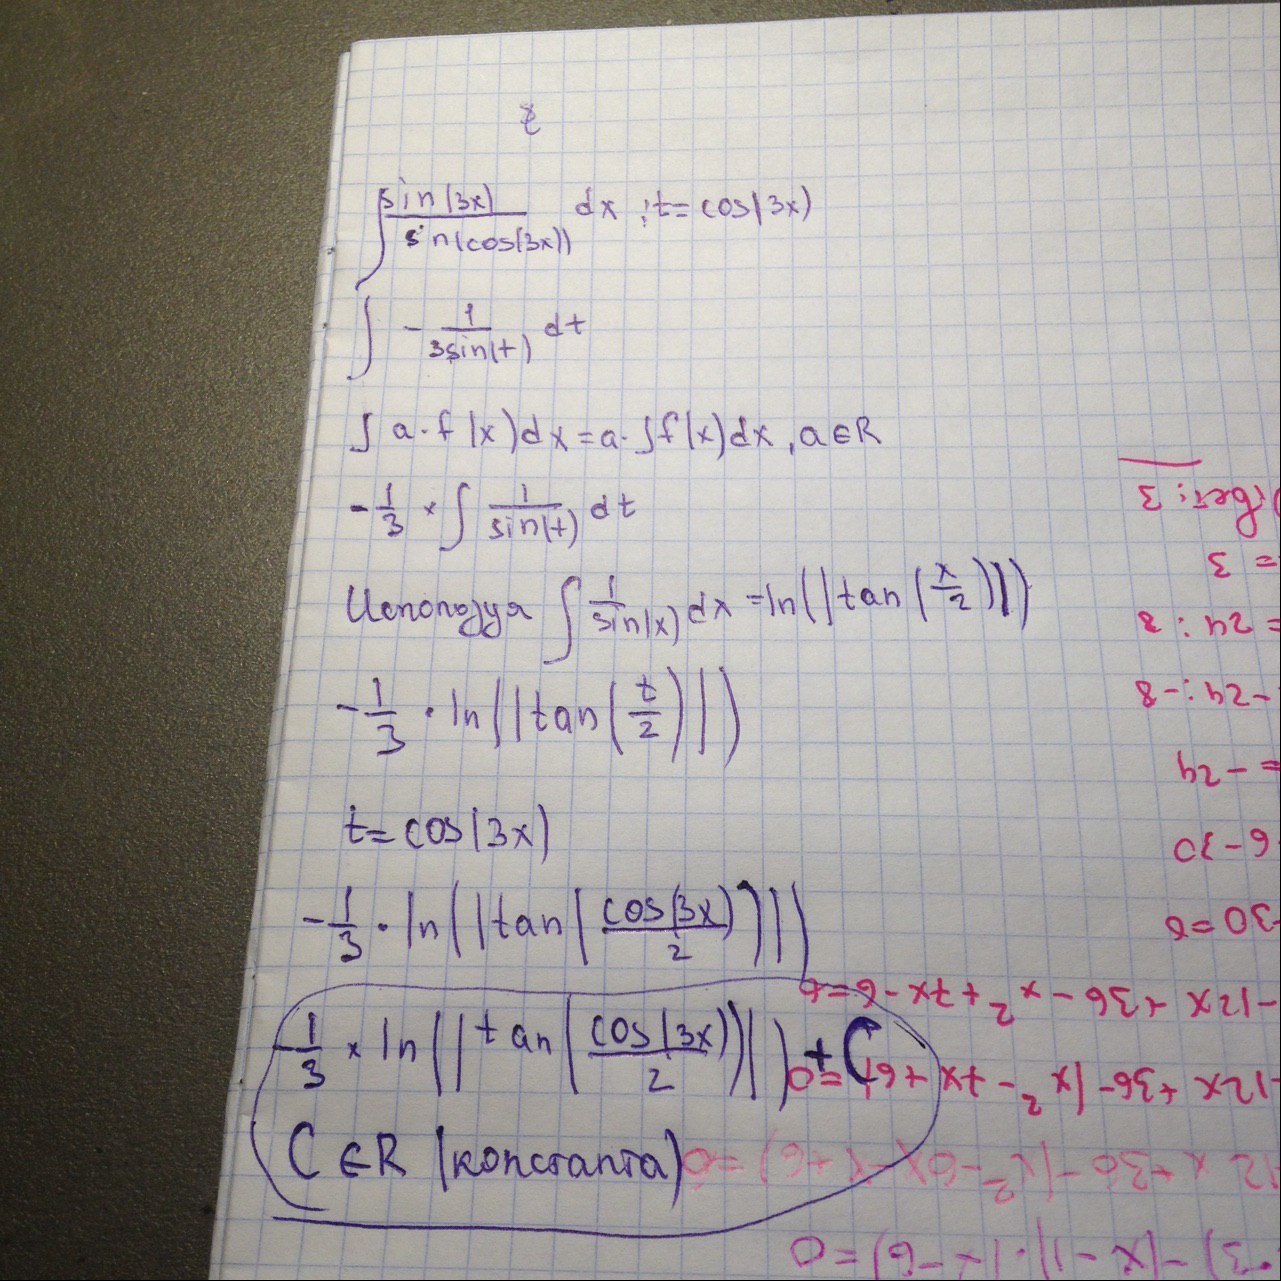 ∫ sin(3x)/sin(cos(3x)) dx ; t = cos(3x)
∫ - 1/3sin(t) dt
∫ a · f(x)dx = a · ∫f(x)dx , a ∈ R
- 1/3 × ∫ 1/sin(t) dt
Используя ∫ 1/sin(x) dx = ln(|tan(x/2)|)
- 1/3 · ln(|tan(t/2)|)
t = cos(3x)
- 1/3 · ln(|tan(cos(3x)/2)|)
- 1/3 × ln(|tan(cos(3x)/2)|) + C
C ∈ R (константа)
·3) -(x-1)·(x-6)=0
12x+36-(x²-6x-x+6)=0
-12x+36-(x²-7x+6)=0
-12x+36-x²+7x-6=0
-30=6
6-30
= -24
-24:-8
= 24:8
= 3
твет: 3